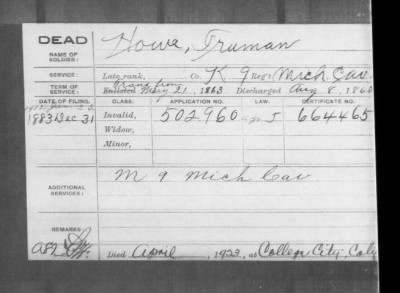 DEAD
NAME OF SOLDIER:
Howe, Truman
SERVICE:
Late rank, Co. K 9 Reg't Mich. Cav.
TERM OF SERVICE:
Trans from
Enlisted May 21, 1863 Discharged Aug 8, 186
DATE OF FILING. CLASS. APPLICATION NO. LAW. CERTIFICATE NO.
1883 Dec 31 Invalid, 502960 664465
Widow,
Minor,
ADDITIONAL SERVICES:
M 9 Mich Cav
REMARKS:
Died April 1923, at College City, Cal